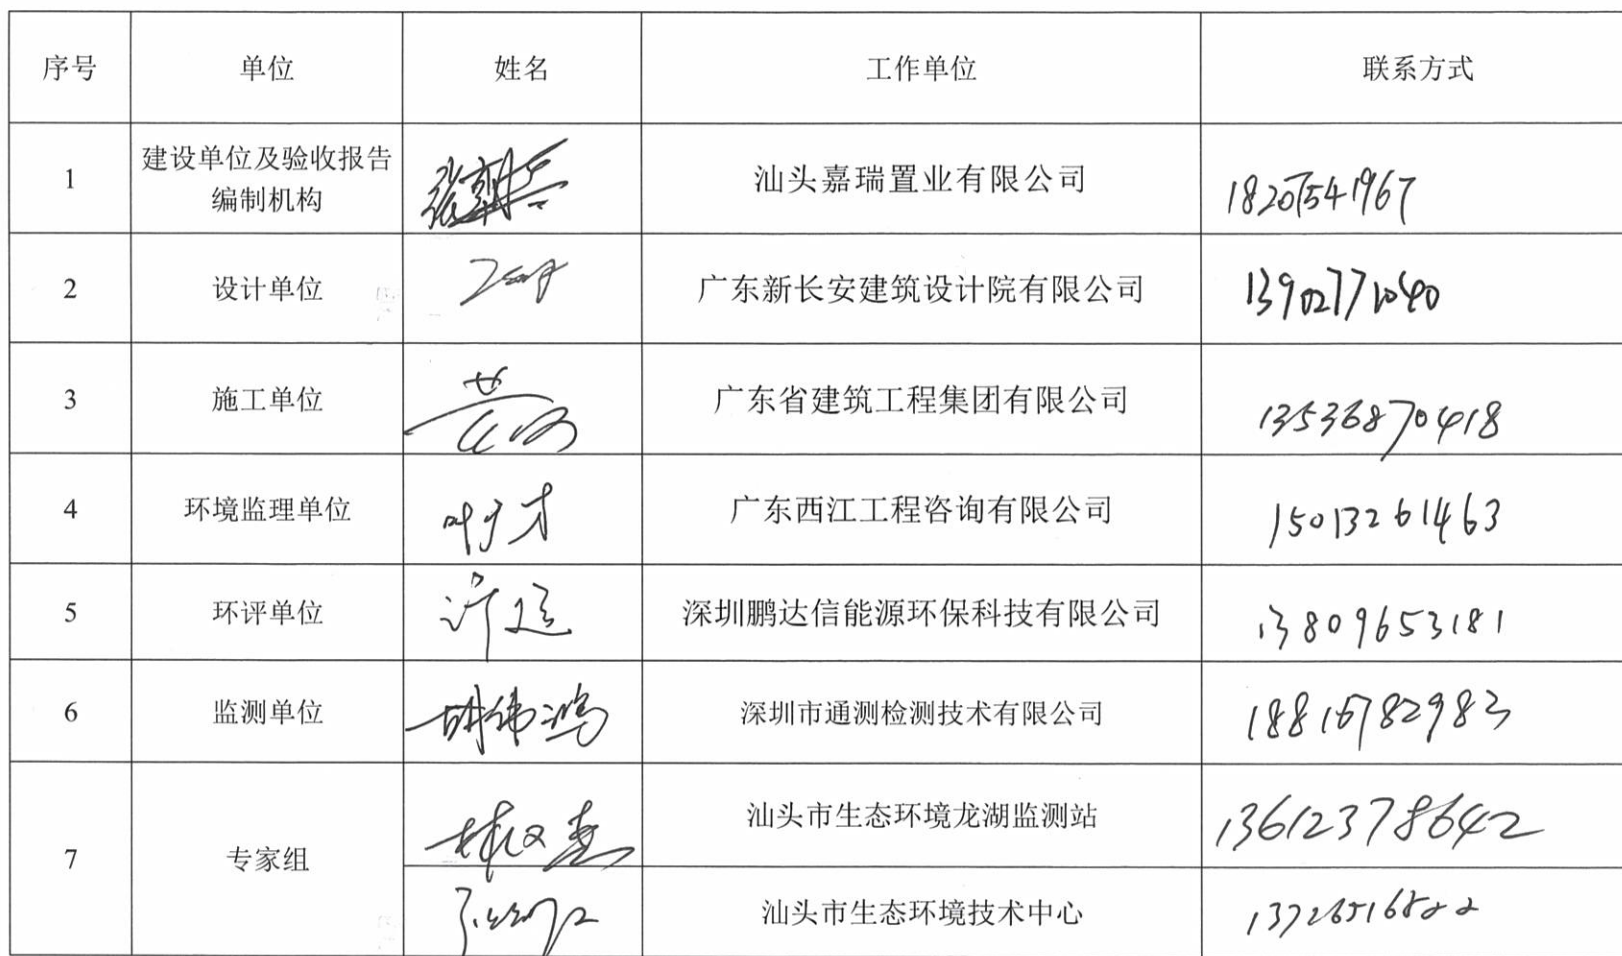 序号 单位 姓名 工作单位 联系方式
1 建设单位及验收报告
编制机构 汕头嘉瑞置业有限公司 18207541967
2 设计单位 广东新长安建筑设计院有限公司 13902771040
3 施工单位 广东省建筑工程集团有限公司 13536870418
4 环境监理单位 广东西江工程咨询有限公司 15013261463
5 环评单位 深圳鹏达信能源环保科技有限公司 13809653181
6 监测单位 胡伟鸿 深圳市通测检测技术有限公司 18816782983
7 专家组 汕头市生态环境龙湖监测站 13612378642
汕头市生态环境技术中心